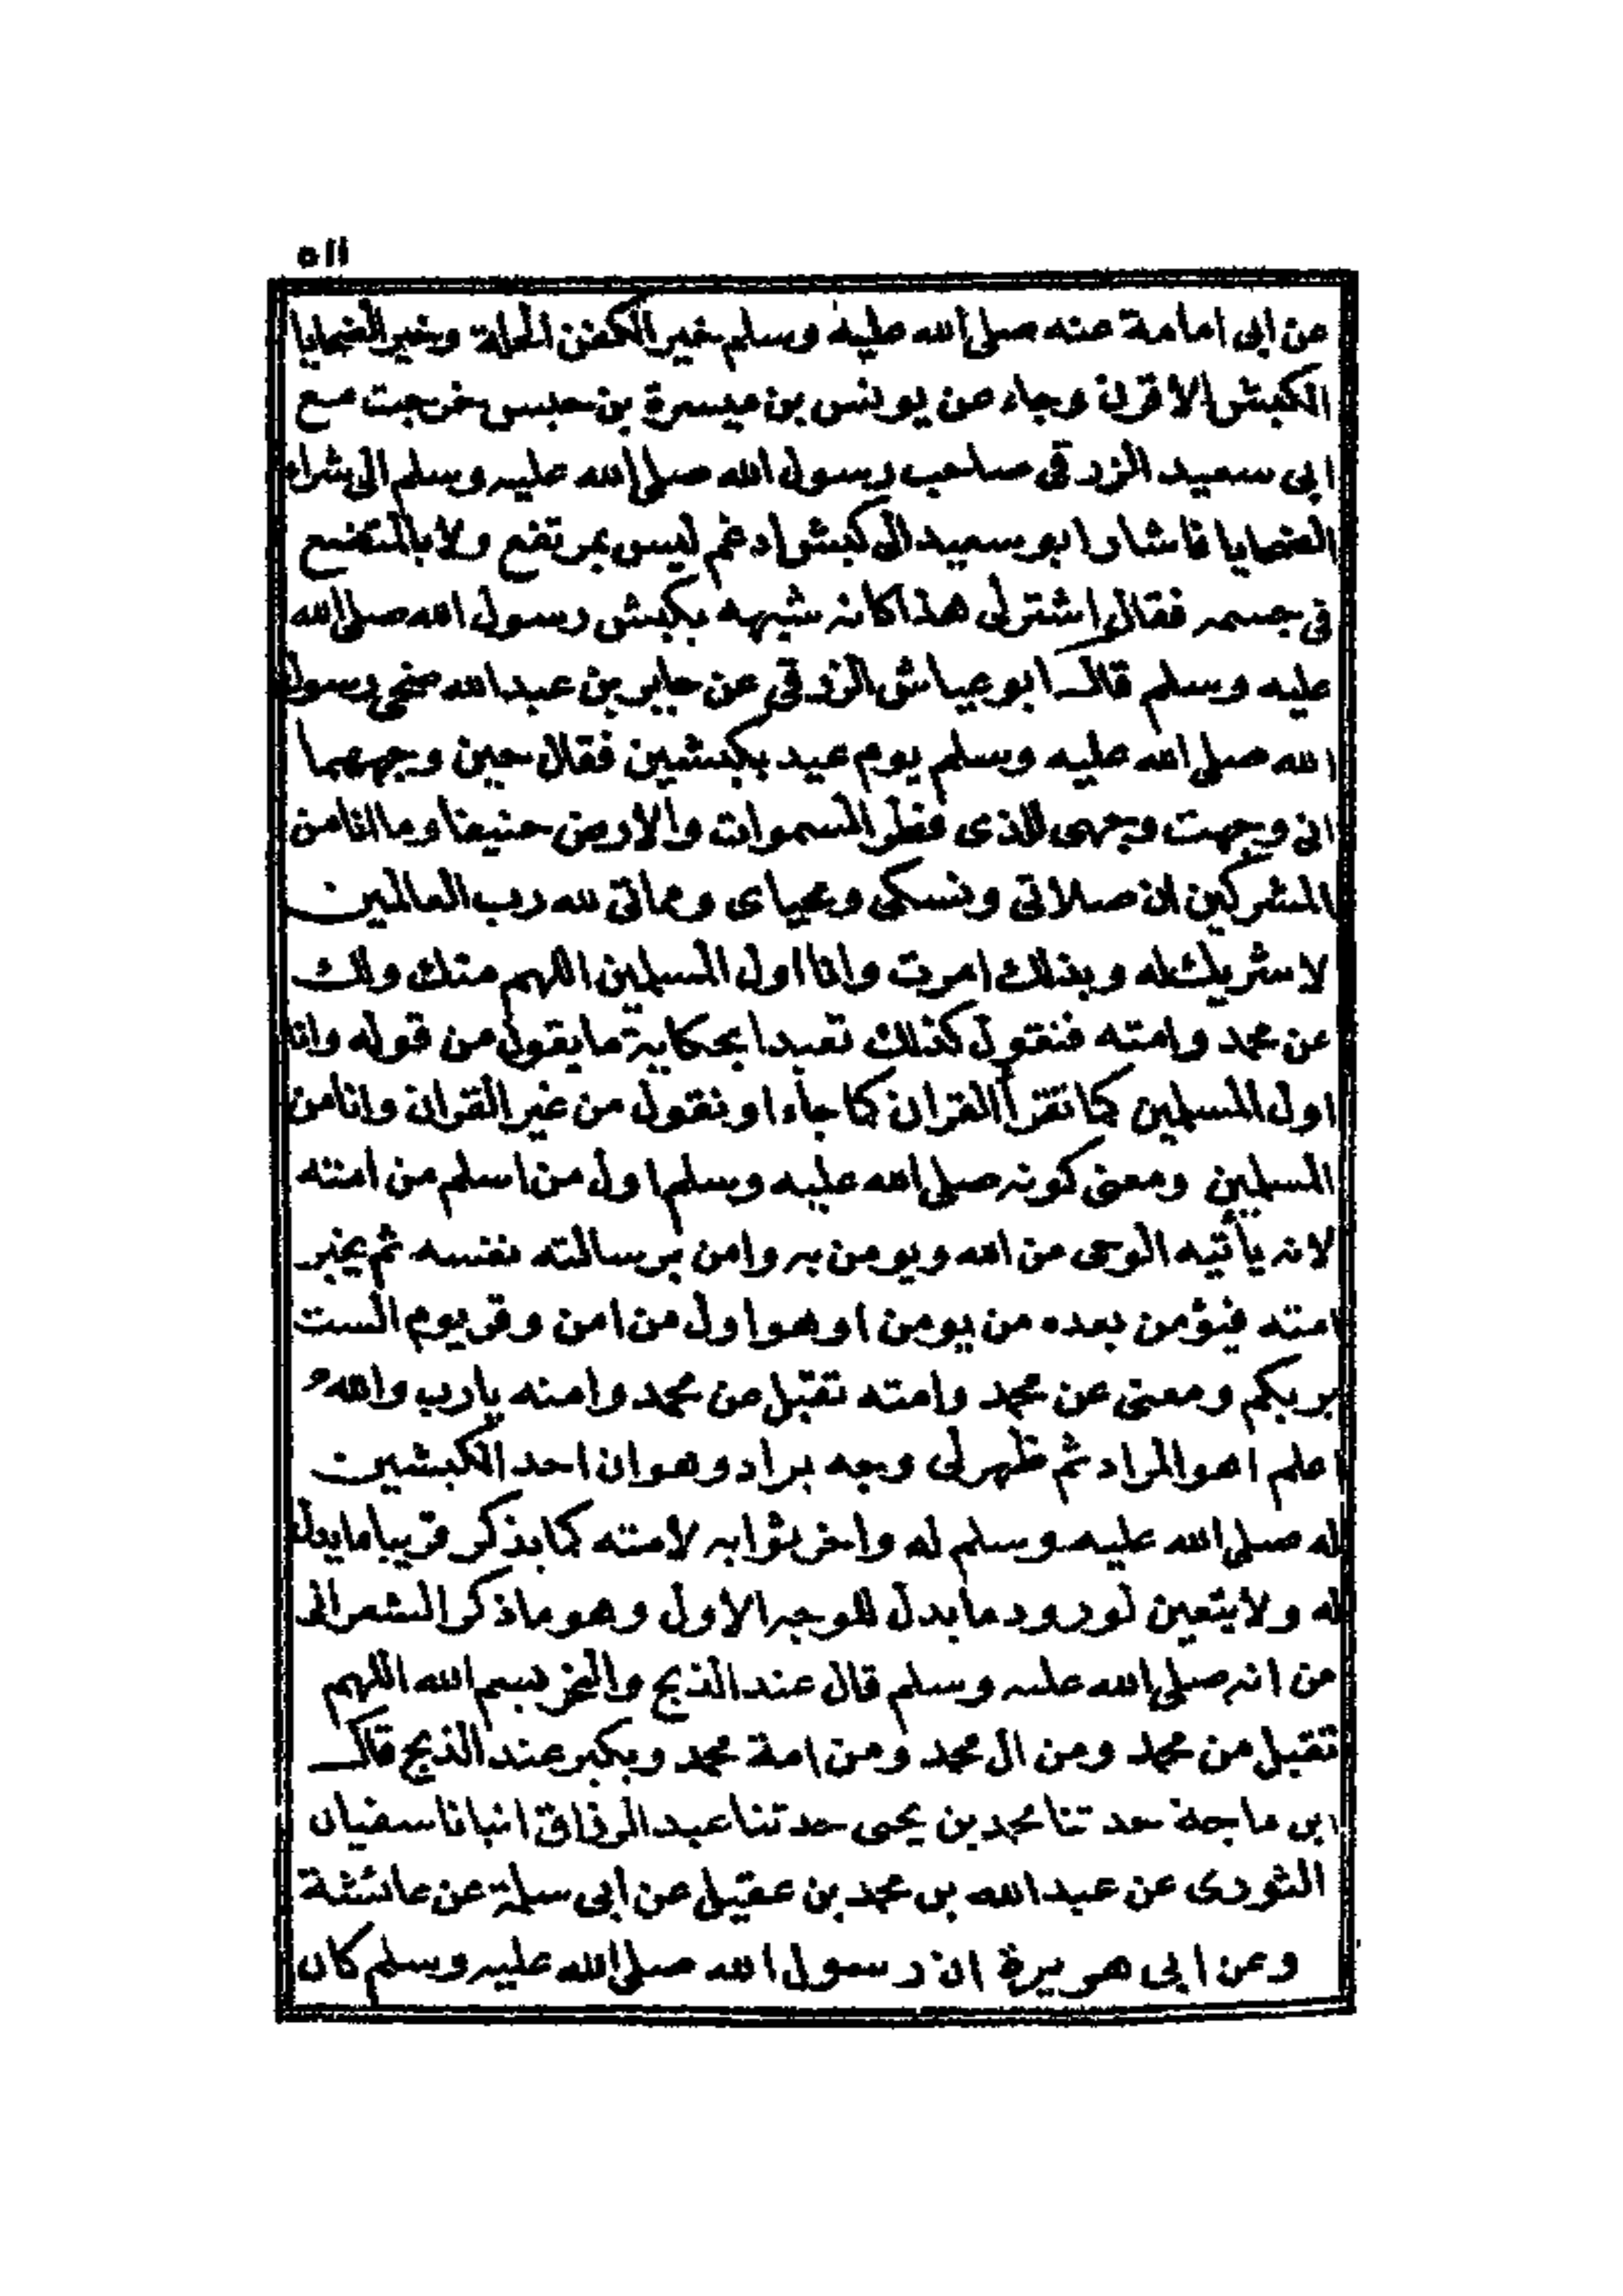 ٥١١
عن ابى امامة عنه صلى الله عليه وسلم خير الكفن الحلة وخير الضحايا
الكبش الاقرن وجاء عن يونس بن ميسرة بن حبس خرجت مع
ابى سعيد الزرقى صاحب رسول الله صلى الله عليه وسلم الى شراء
الضحايا فاشار ابو سعيد الى كبش ادغم ليس بمرتفع ولا بالمتضع
فى جسمه فقال اشتر لى هذا كانه شبهه بكبش رسول الله صلى الله
عليه وسلم قال ابو عياش الزرقى عن جابر بن عبد الله ضحى رسول
الله صلى الله عليه وسلم يوم عيد بكبشين فقال حين وجههما
انى وجهت وجهى للذى فطر السموات والارض حنيفا وما انا من
المشركين ان صلاتى ونسكى ومحياى ومماتى لله رب العالمين
لا شريك له وبذلك امرت وانا اول المسلمين اللهم منك ولك
عن محمد وامته فنقول كذلك تعبدا بحكاية ما يقول من قوله وانا
اول المسلمين كما نقرأ القران كما جاء او نقول من غير القران وانا من
المسلمين ومعنى كونه صلى الله عليه وسلم اول من اسلم من امته
لانه يأتيه الوحى من الله ويومن به وامن برسالته نفسه ثم يخبر
امته فيؤمن بعده من يومن او هو اول من امن وقر يوم الست
بربكم ومعنى عن محمد وامته تقبل من محمد وامته يارب والله
اعلم اهو المراد ثم ظهر لى وجه يراد وهو ان احد الكبشين
له صلى الله عليه وسلم له واخر ثوابه لامته كما يذكر قريبا ما يدل
له ولا يتعين لورود ما يدل للوجه الاول وهو ما ذكر الشعرانى
من انه صلى الله عليه وسلم قال عند الذبح والنحر بسم الله اللهم
تقبل من محمد ومن ال محمد ومن امة محمد ويكبر عند الذبح قال
ابن ماجة حدثنا محمد بن يحيى حدثنا عبد الرزاق انبانا سفيان
الثورى عن عبد الله بن محمد بن عقيل عن ابى سلمة عن عائشة
وعن ابى هريرة ان رسول الله صلى الله عليه وسلم كان